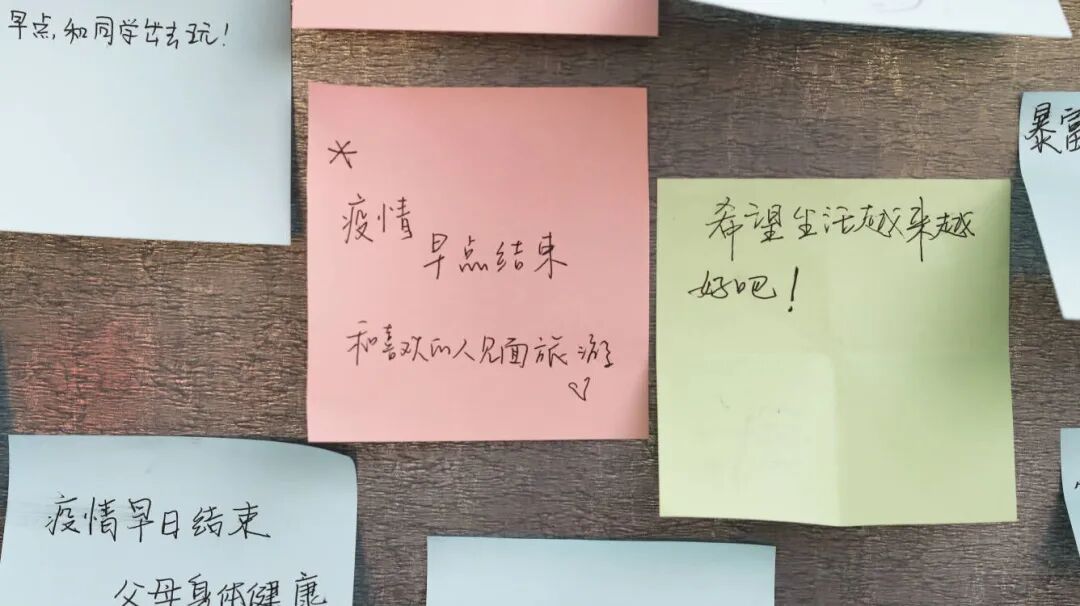 早点和同学出去玩!
疫情
早点结束
和喜欢的人见面旅游
希望生活越来越
好吧!
暴富
疫情早日结束
父母身体健康